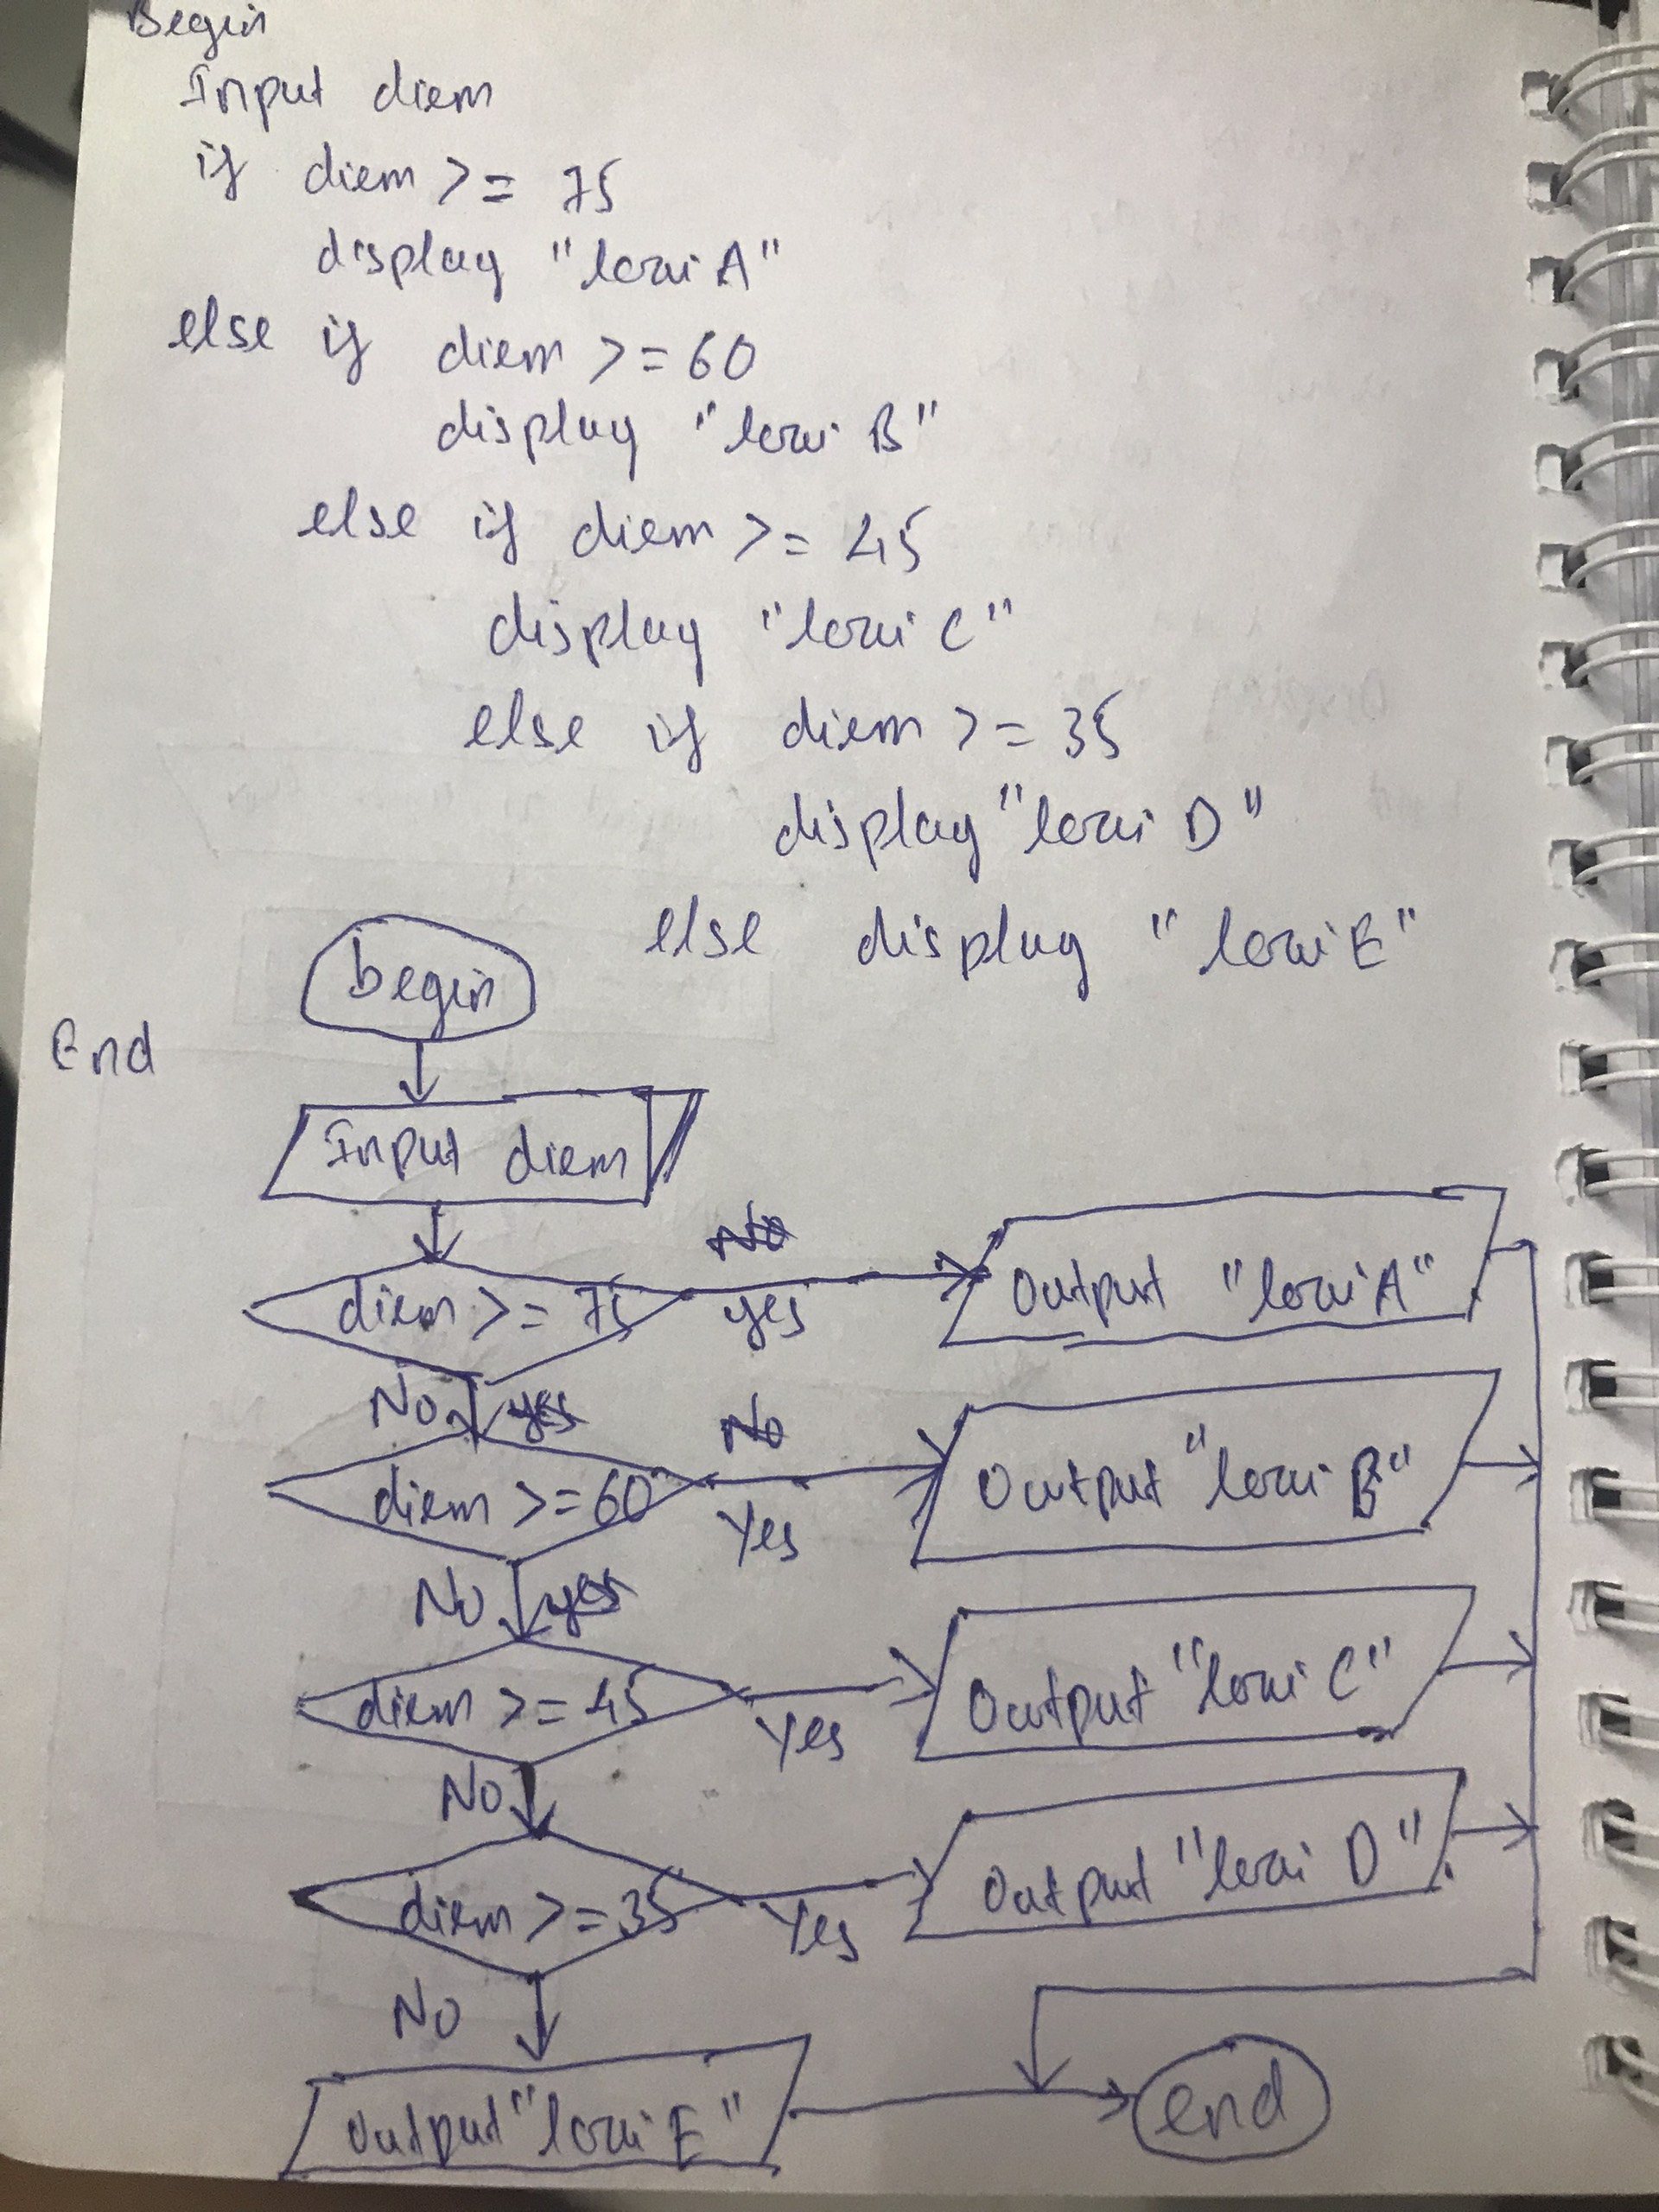 Begin
Input diem
if diem >= 75
display "loai A"
else if diem >= 60
display "loai B"
else if diem >= 45
display "loai C"
else if diem >= 35
display "loai D"
else display "loai E"
End
begin
Input diem
diem >= 75
No
yes
Output "loai A"
No
yes
diem >= 60
No
Yes
Output "loai B"
No
yes
diem >= 45
Yes
Output "loai C"
No
diem >= 35
Yes
Output "loai D"
No
Output "loai E"
end